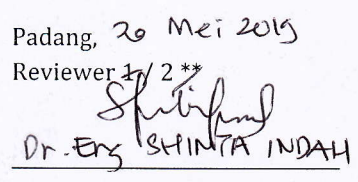 Padang, 20 Mei 2019
Reviewer 1 / 2 **
Dr. Eng SHINTA INDAH